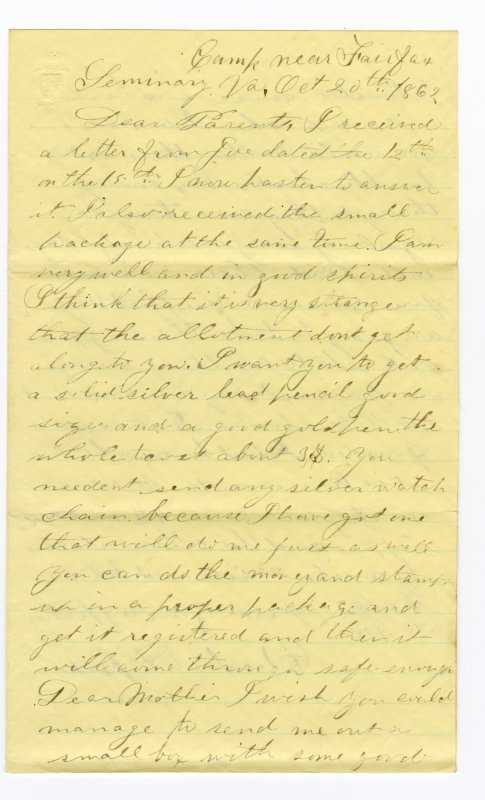 Camp near Fairfax
Seminary, Va, Oct 20th 1862
Dear Parents, I received
a letter from Joe dated the 12th
on the 15th I now hasten to answer
it. I also received the small
package at the same time. I am
very well and in good spirits
I think that it is very strange
that the allotment dont get
along to you. I want you to get
a solid silver lead pencil good
size and a good gold pen the
whole to cost about 3$. You
needent send any silver watch
chain because I have got one
that will do me just as well
You can do the money and stamps
up in a proper package and
get it registered and then it
will come through safe enough
Dear Mother I wish you could
manage to send me out a
small box with some good